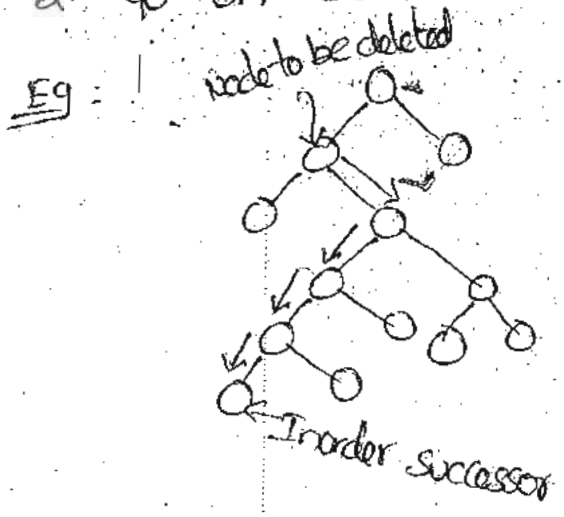 Node to be deleted
Eg :
Inorder successor